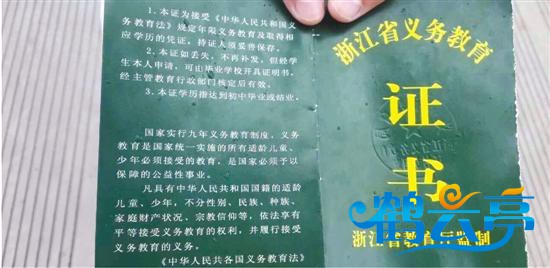 1. 本证为接受《中华人民共和国义
务教育法》规定年限义务教育及取得相
应学历的凭证，持证人须妥善保存。
2. 本证如丢失，不再补发，但经学
生本人申请，可由毕业学校开具证明书，
经主管教育行政部门核定后有效。
3. 本证学历指达到初中毕业或结业。
国家实行九年义务教育制度，义务
教育是国家统一实施的所有适龄儿童、
少年必须接受的教育，是国家必须予以
保障的公益性事业。
凡具有中华人民共和国国籍的适龄
儿童、少年，不分性别、民族、种族、
家庭财产状况、宗教信仰等，依法享有
平等接受义务教育的权利，并履行接受
义务教育的义务。
《中华人民共各国义务教育法》
浙江省义务教育
证书
浙江省教育厅监制
鹤云亭